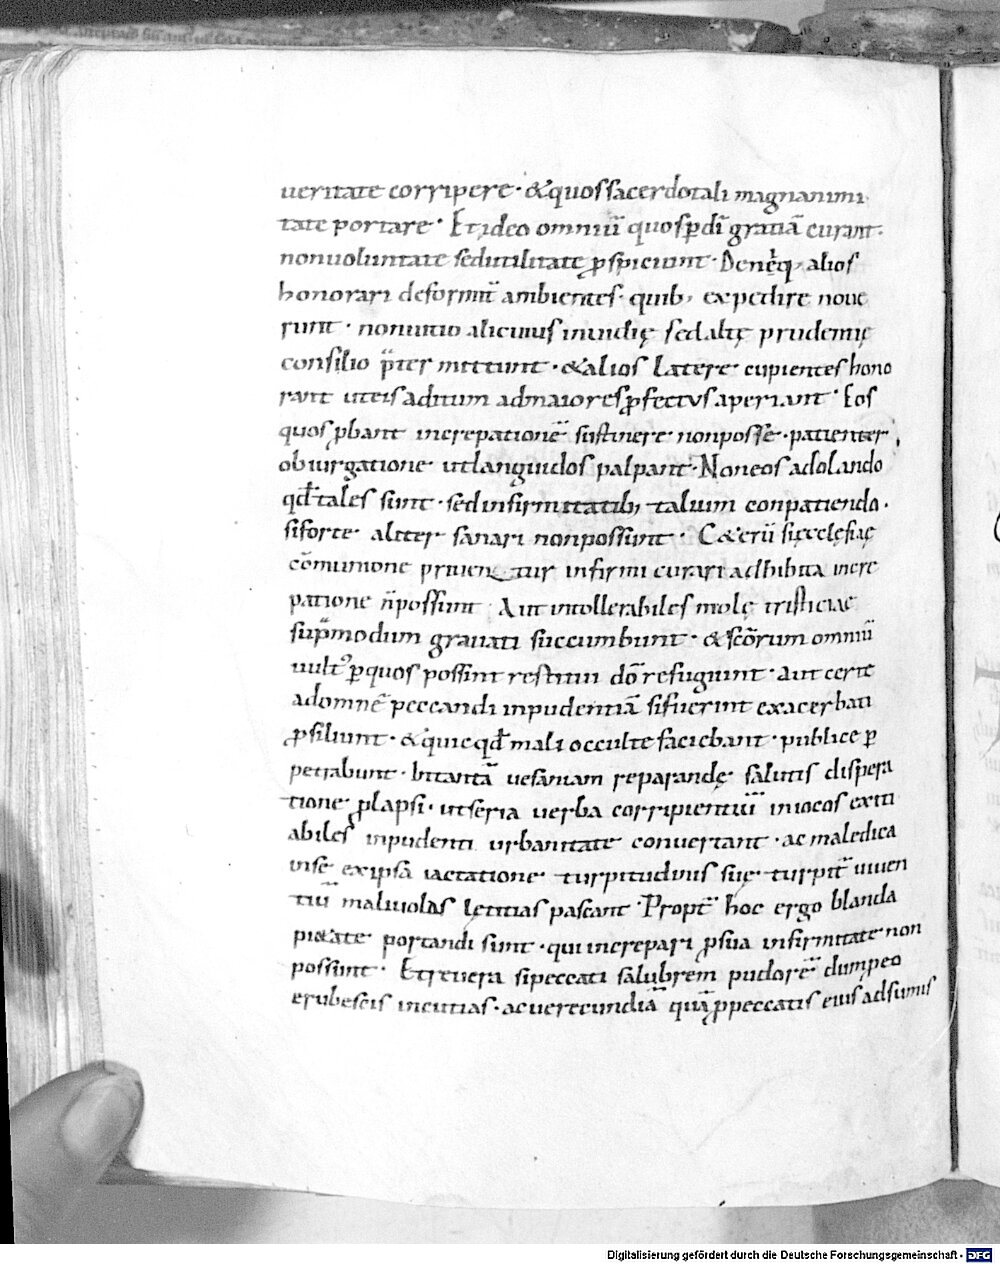 ueritate corripere · & quos sacerdotali magnanimi
tate portare · Et ideo omniū quos p̄ dī gratiā curant ·
non uoluntate sed utilitate p̱spiciunt · Deneq; alios
honorari deformit̄ ambientes · quib; expedire noue
runt · non uitio alicuius inuidię sed altę prudentię
consilio p̄ter mittunt · & alios latere cupientes hono
rant ut eis aditum ad maiores p̱fectus aperiant · Eos
quos p̱bant increpationē sustinere non posse · patienter
obiurgatione ut languidos palpant · Non eos adolando
qđ tales sunt · sed infirmitatib; talium conpatiendo ·
si forte aliter sanari non possunt · C&erū si ęcclęsiae
cōmunione priuentur infirmi curari adhibita incre
patione n̄ possunt ; Aut intollerabiles mole tristiciae
sup̄modum grauati succumbunt · & sc̄orum omniū
uultꝰ p̱ quos possint restitui dō refugiunt · aut certe
ad omnē peccandi inpudentiā si fuerint exacerbati
p̱siliunt · & quicqđ mali occulte faciebant · publice p̱
petrabunt · in tantā uesaniam reparandę salutis dispera
tione p̱lapsi · ut seria uerba corripientiū in iocos exiti
abiles inpudenti urbanitate conuertant · ac maledica
uise ex ipsā iactatione turpitudinis suę turpit̄ uiuen
tiū maliuolas lętitias pascant · Propt̄ hoc ergo blanda
pi&ate portandi sunt · qui increpari p̱ sua infirmitate non
possunt · Et reuera si peccati salubrem pudorē dum peo
erubescis incutias · ac uerecundiā quā p̱ peccatis eius adsumis